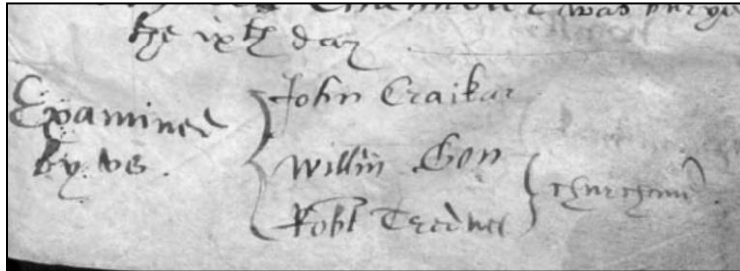 was burye
the ixth day
Examined
by vs.
John Craikar
Willm Gon
Robt Tredwel
churchmd